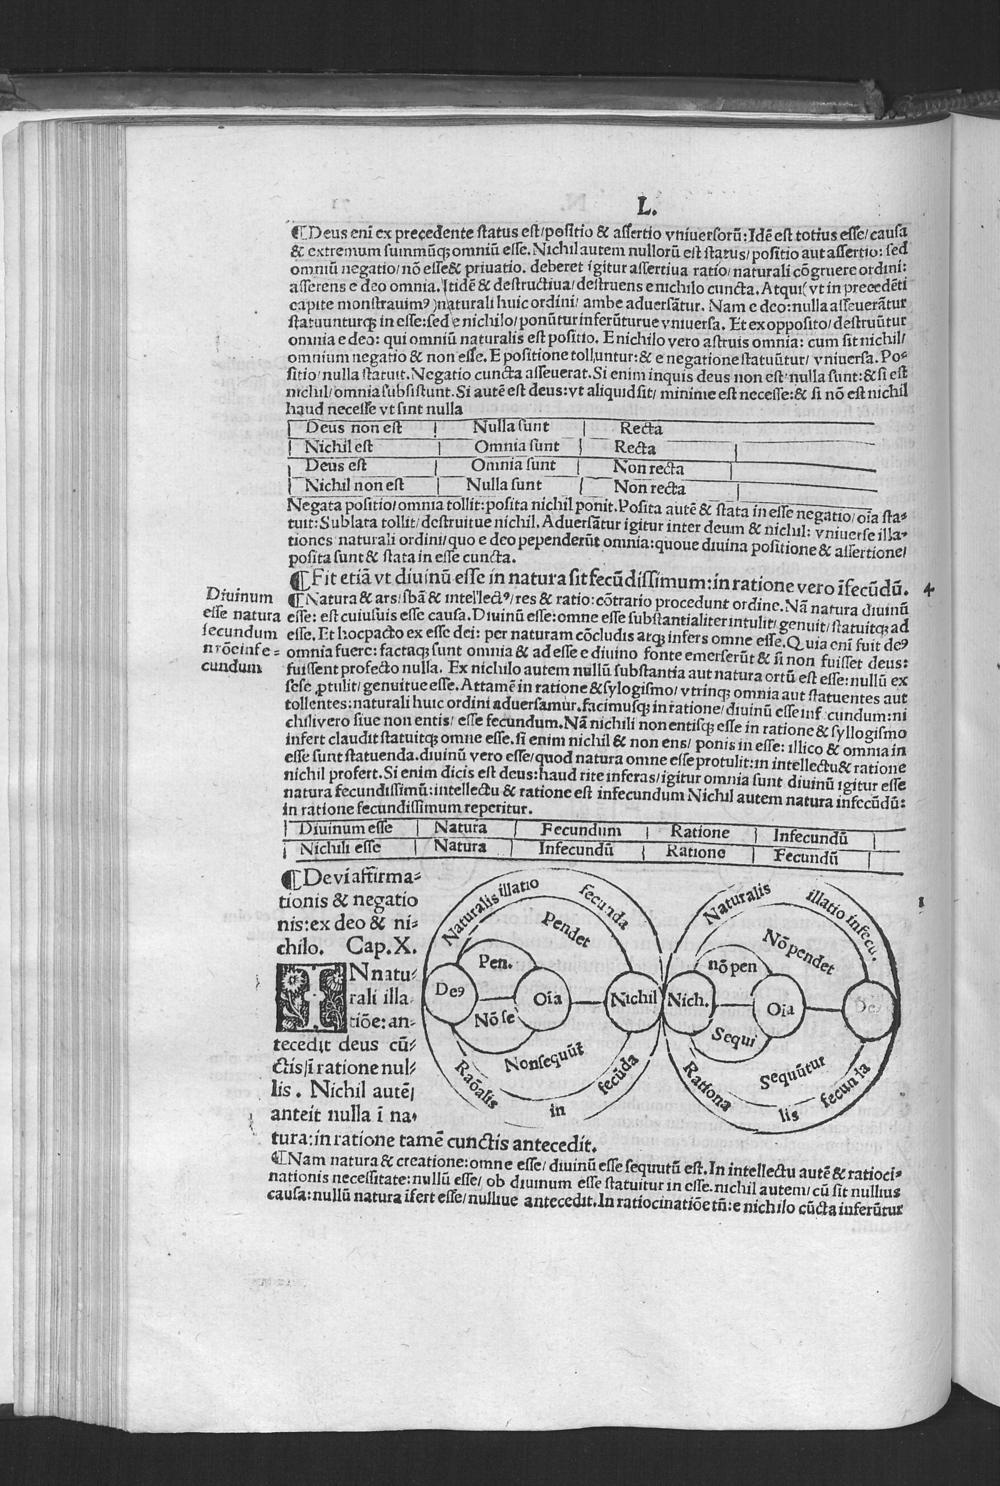 L.
¶Deus enī ex precedente status est/positio & assertio vniuersorū: Idē est totius esse/causa
& extremum summūqꝫ omniū esse. Nichil autem nullorū est status/positio aut assertio: sed
omniū negatio/nō esse& priuatio. deberet igitur assertiua ratio/naturali cōgruere ordini:
asserens e deo omnia. Itidē & destructiua/destruens e nichilo cuncta. Atqui( vt in precedēti
capite monstrauimꝰ )naturali huic ordini/ ambe aduersātur. Nam e deo:nulla asseuerātur
statuunturqꝫ in esse:sed e nichilo/ponūtur inferūturue vniuersa. Et ex opposito/destruūtur
omnia e deo: qui omniū naturalis est positio. E nichilo vero astruis omnia: cum sit nichil/
omnium negatio & non esse. E positione tolluntur:& e negatione statuūtur/ vniuersa. Po⸗
sitio/nulla statuit. Negatio cuncta asseuerat. Si enim inquis deus non est nulla sunt:& si est
nichil/omnia subsistunt. Si autē est deus:vt aliquid sit/ minime est necesse:& si nō est nichil
haud necesse vt sint nulla
Deus non est | Nulla sunt | Recta
Nichil est | Omnia sunt | Recta
Deus est | Omnia sunt | Non recta
Nichil non est | Nulla sunt | Non recta
Negata positio/omnia tollit:posita nichil ponit. Posita autē & stata in esse negatio/oīa sta⸗
tuit: Sublata tollit/destruitue nichil. Aduersātur igitur inter deum & nichil: vniuerse illa⸗
tiones naturali ordini/quo e deo pependerūt omnia:quoue diuina positione & assertione/
posita sunt & stata in esse cuncta.
¶Fit etiā vt diuinū esse in natura sit fecūdissimum:in ratione vero īfecūdū. 4
Diuinum
esse natura
fecundum
nrōe infe⸗
cundum
¶Natura & ars/sbā & intellectꝰ/res & ratio:cōtrario procedunt ordine. Nā natura diuinū
esse: est cuiusuis esse causa. Diuinū esse:omne esse substantialiter intulit/genuit/statuitqꝫ ad
esse. Et hocpacto ex esse dei: per naturam cōcludis atqꝫ infers omne esse. Quia enī fuit deꝰ
omnia fuere: factaqꝫ sunt omnia & ad esse e diuino fonte emerserūt & si non fuisset deus:
fuissent profecto nulla. Ex nichilo autem nullū substantia aut natura ortū est esse:nullū ex
sese ꝓtulit/genuitue esse. Attamē in ratione & sylogismo/vtrinqꝫ omnia aut statuentes aut
tollentes:naturali huic ordini aduersamur. facimusqꝫ in ratione/diuinū esse infecundum:ni
chili vero siue non entis/ esse fecundum. Nā nichili non entisqꝫ esse in ratione & syllogismo
infert claudit statuitqꝫ omne esse. si enim nichil & non ens/ ponis in esse: illico & omnia in
esse sunt statuenda. diuinū vero esse/quod natura omne esse protulit:in intellectu& ratione
nichil profert. Si enim dicis est deus:haud rite inferas/igitur omnia sunt diuinū igitur esse
natura fecundissimū:intellectu & ratione est infecundum Nichil autem natura infecūdū:
in ratione fecundissimum reperitur.
Diuinum esse | Natura | Fecundum | Ratione | Infecundū
Nichili esse | Natura | Infecundū | Ratione | Fecundū
¶De vi affirma⸗
tionis & negatio
nis:ex deo & ni⸗
chilo. Cap. X.
IN natu⸗
rali illa⸗
tiōe: an⸗
tecedit deus cū⸗
ctis/ī ratione nul⸗
lis. Nichil autē/
anteit nulla ī na⸗
tura:in ratione tamē cunctis antecedit.
Naturalis illatio fecunda
Pendet
Pen.
Deꝰ
Oīa
Nichil
Nō se
Nonsequūt
Raōalis in fecūda
1
Naturalis illatio infecu.
Nō pendet
nō pen
Nich.
Oīa
Deꝰ
Sequi
Sequūtur
Rationa lis fecunda
¶Nam natura & creatione:omne esse/ diuinū esse sequutū est. In intellectu autē & ratioci⸗
nationis necessitate:nullū esse/ ob diuinum esse statuitur in esse. nichil autem/ cū sit nullius
causa:nullū natura īfert esse/nulliue antecedit. In ratiocinatiōe tñ:e nichilo cūcta inferūtur